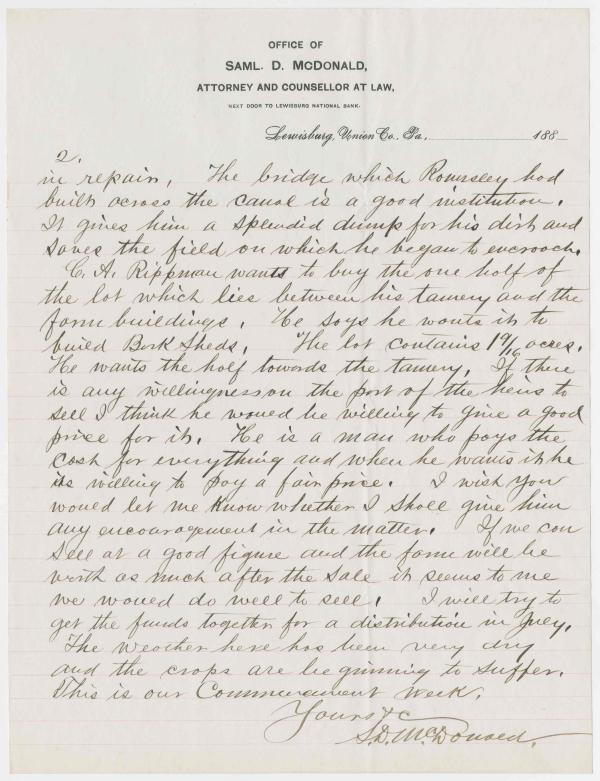 OFFICE OF
SAML. D. McDONALD,
ATTORNEY AND COUNSELLOR AT LAW,
NEXT DOOR TO LEWISBURG NATIONAL BANK.
Lewisburg, Union Co., Pa., 188
2.
in repair. The bridge which Romsley had
built across the canal is a good institution.
It gives him a splendid dump for his dirt and
saves the field on which he began to encroach.
C. A. Rippman wants to buy the one half of
the lot which lies between his tannery and the
farm buildings. He says he wants it to
build Bark Sheds. The lot contains 1 9/16 acres.
He wants the half towards the tannery. If there
is any willingness on the part of the heirs to
sell I think he would be willing to give a good
price for it. He is a man who pays the
cash for everything and when he wants it he
is willing to pay a fair price. I wish you
would let me know whether I shall give him
any encouragement in the matter. If we can
sell at a good figure and the farm will be
worth as much after the sale it seems to me
we would do well to sell. I will try to
get the funds together for a distribution in July.
The weather here has been very dry
and the crops are beginning to suffer.
This is our Commencement week.
Yours &c
S. D. McDonald.